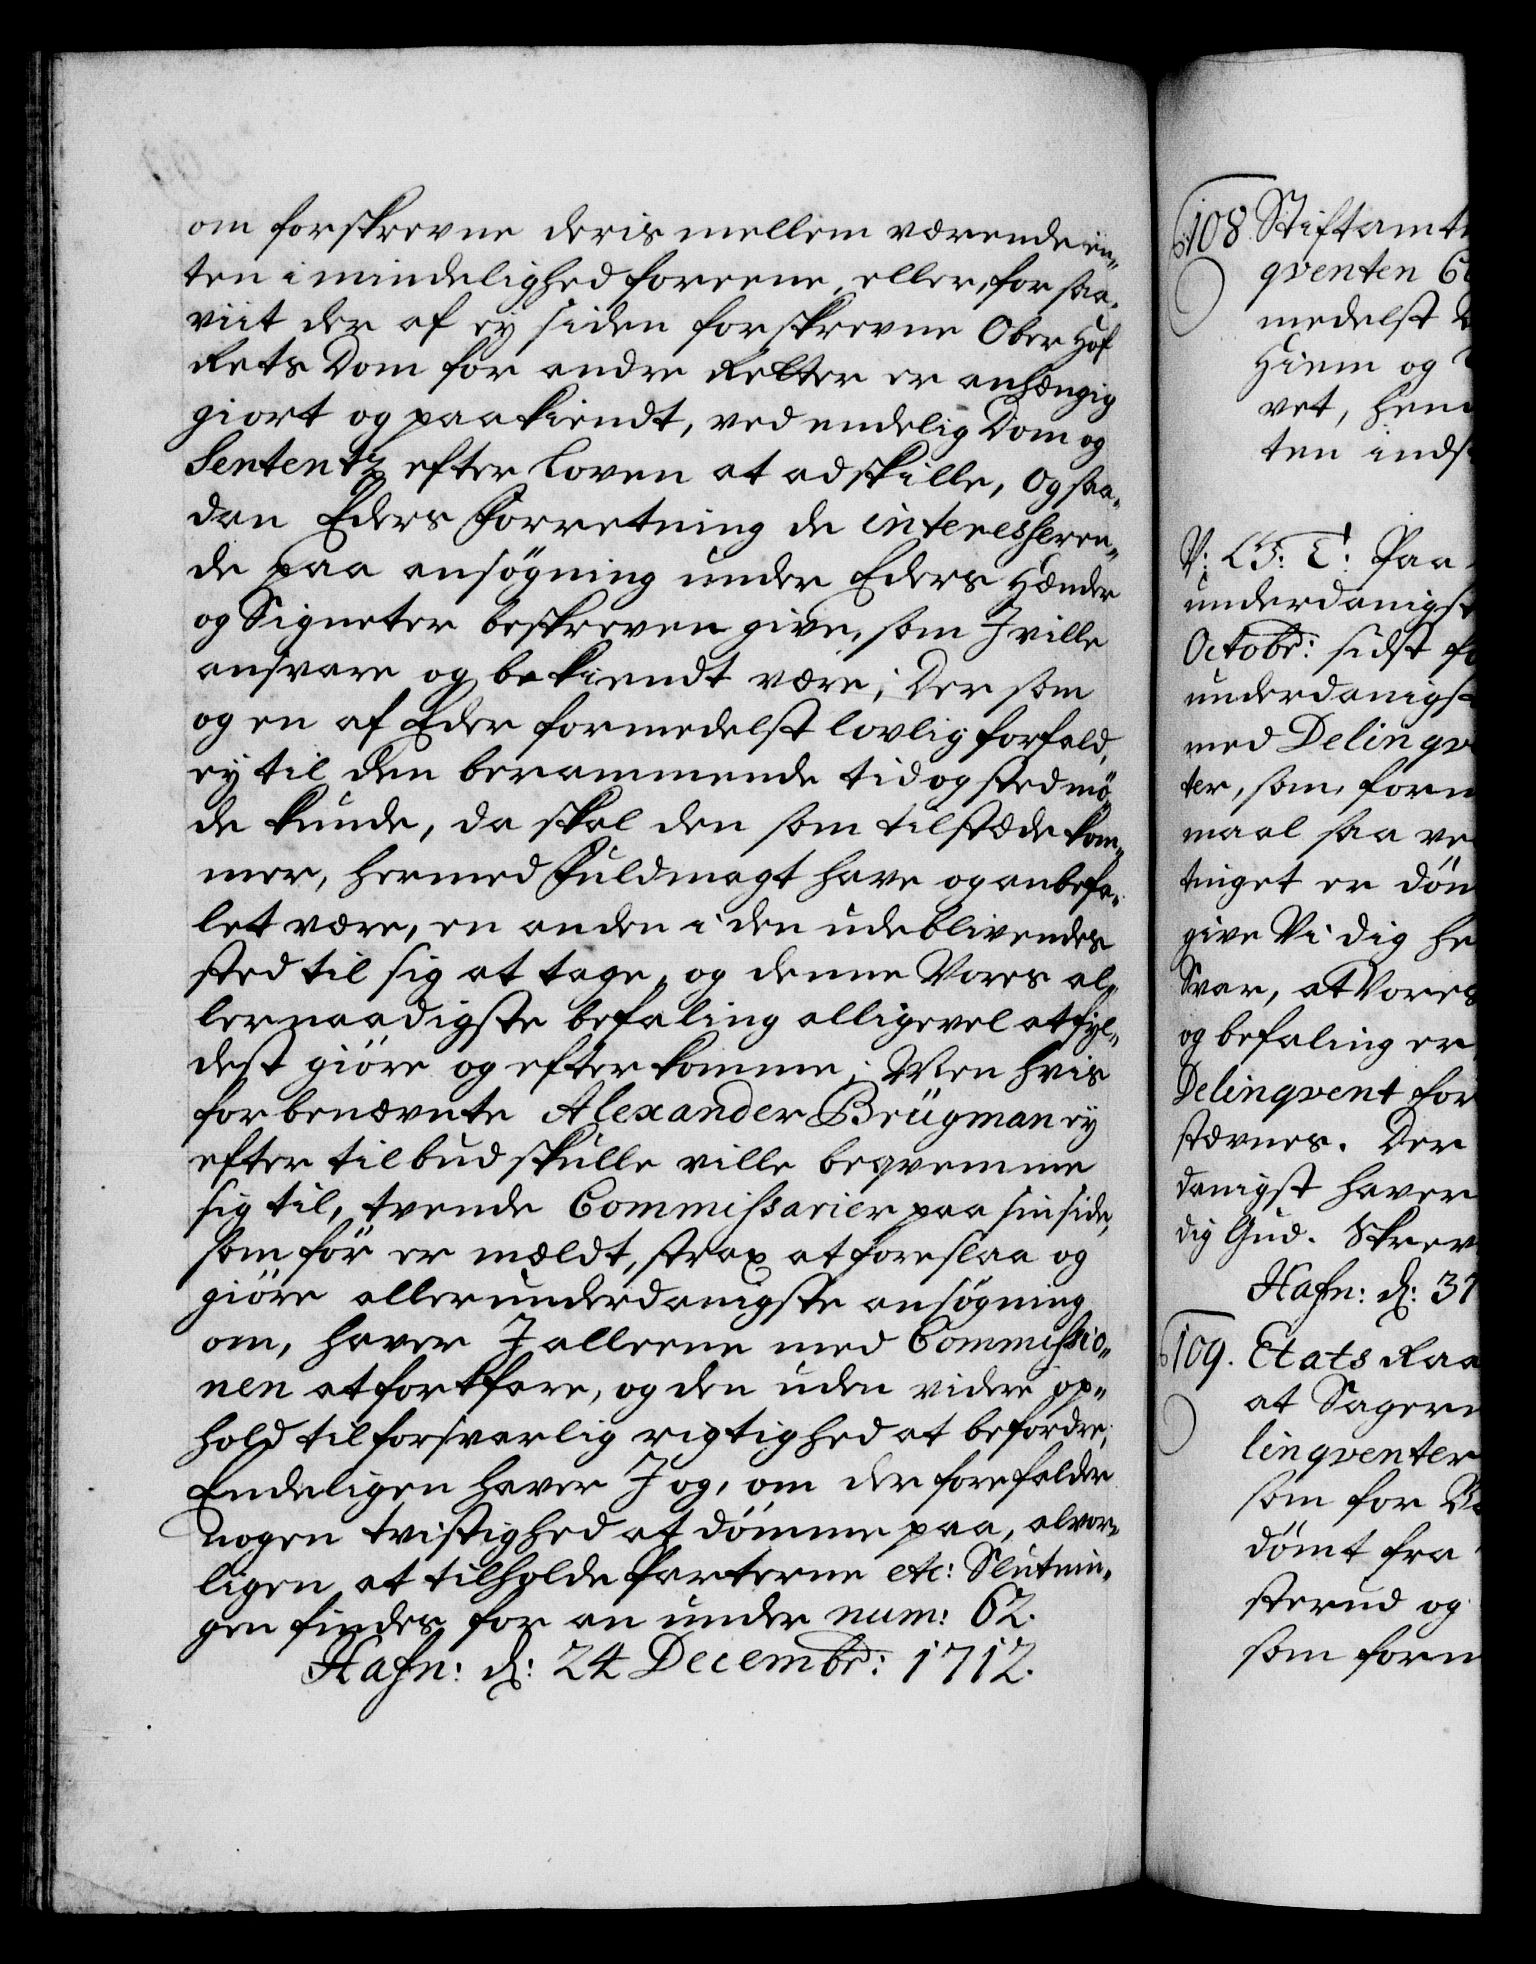 om forskrevne deris mellem værende en„
ten i mindelighed foreene, eller, for saa„
viit der af ej siden forskrevne Ober Hof
Rets Dom for andre Retter er anhængig
giort og paakiendt, ved endelig Dom og
Sententz efter Loven at adskille, og saa„
dan Eders Forretning de interesseren„
de paa ansøgning under Eders Hænder
og Signeter beskreven give, som I ville
ansvare og bekiendt være; Der som
og en af Eder formedelst lovlig forfald,
ej til den berammende tid og sted mö„
de kunde, da skal den som tilstæde kom„
mer, hermed Fuldmagt have og anbefa„
let være, en anden i den udeblivendes
sted til sig at tage, og denne Vores al„
lernaadigste befaling alligevel at fyl„
dest giöre og efterkomme; Men hvis
forbenævnte Alexander Brügman ej
efter tilbud skulle ville beqvemme
sig til, tvende Commissarier paa sin side,
som för er meldt, strax at foreslaa og
giöre allerunderdanigste ansøgning
om, haver I alleene med Commissio„
nen at fortfare, og den uden videre op„
hold til forsvarlig rigtighed at befordre,
Endeligen haver I og, om der forefalder
nogen tvistighed at dömme paa, alvor„
ligen at tilholde Parterne etc: Slutnin„
gen findes for an under num: 62.
Hafn: d: 24 Decembr: 1712.
108. Stiftamt
qventen
medelst
Hiem og
vet, hen
ten inds
V: G: T: Paa
underdanigst
Octobr: sidst fo
underdanigst
med Delinqv
ter, som, form
maal saa ve
tinget er döm
give Vi dig he
Svar, at Vores
og befaling er
Delinqvent for
stævnes. Der
danigst haver
dig Gud. Skrev
Hafn: d: 31
109. Etats Raa
at Sagern
linqventer
som for
dömt fra
sterud og
som form